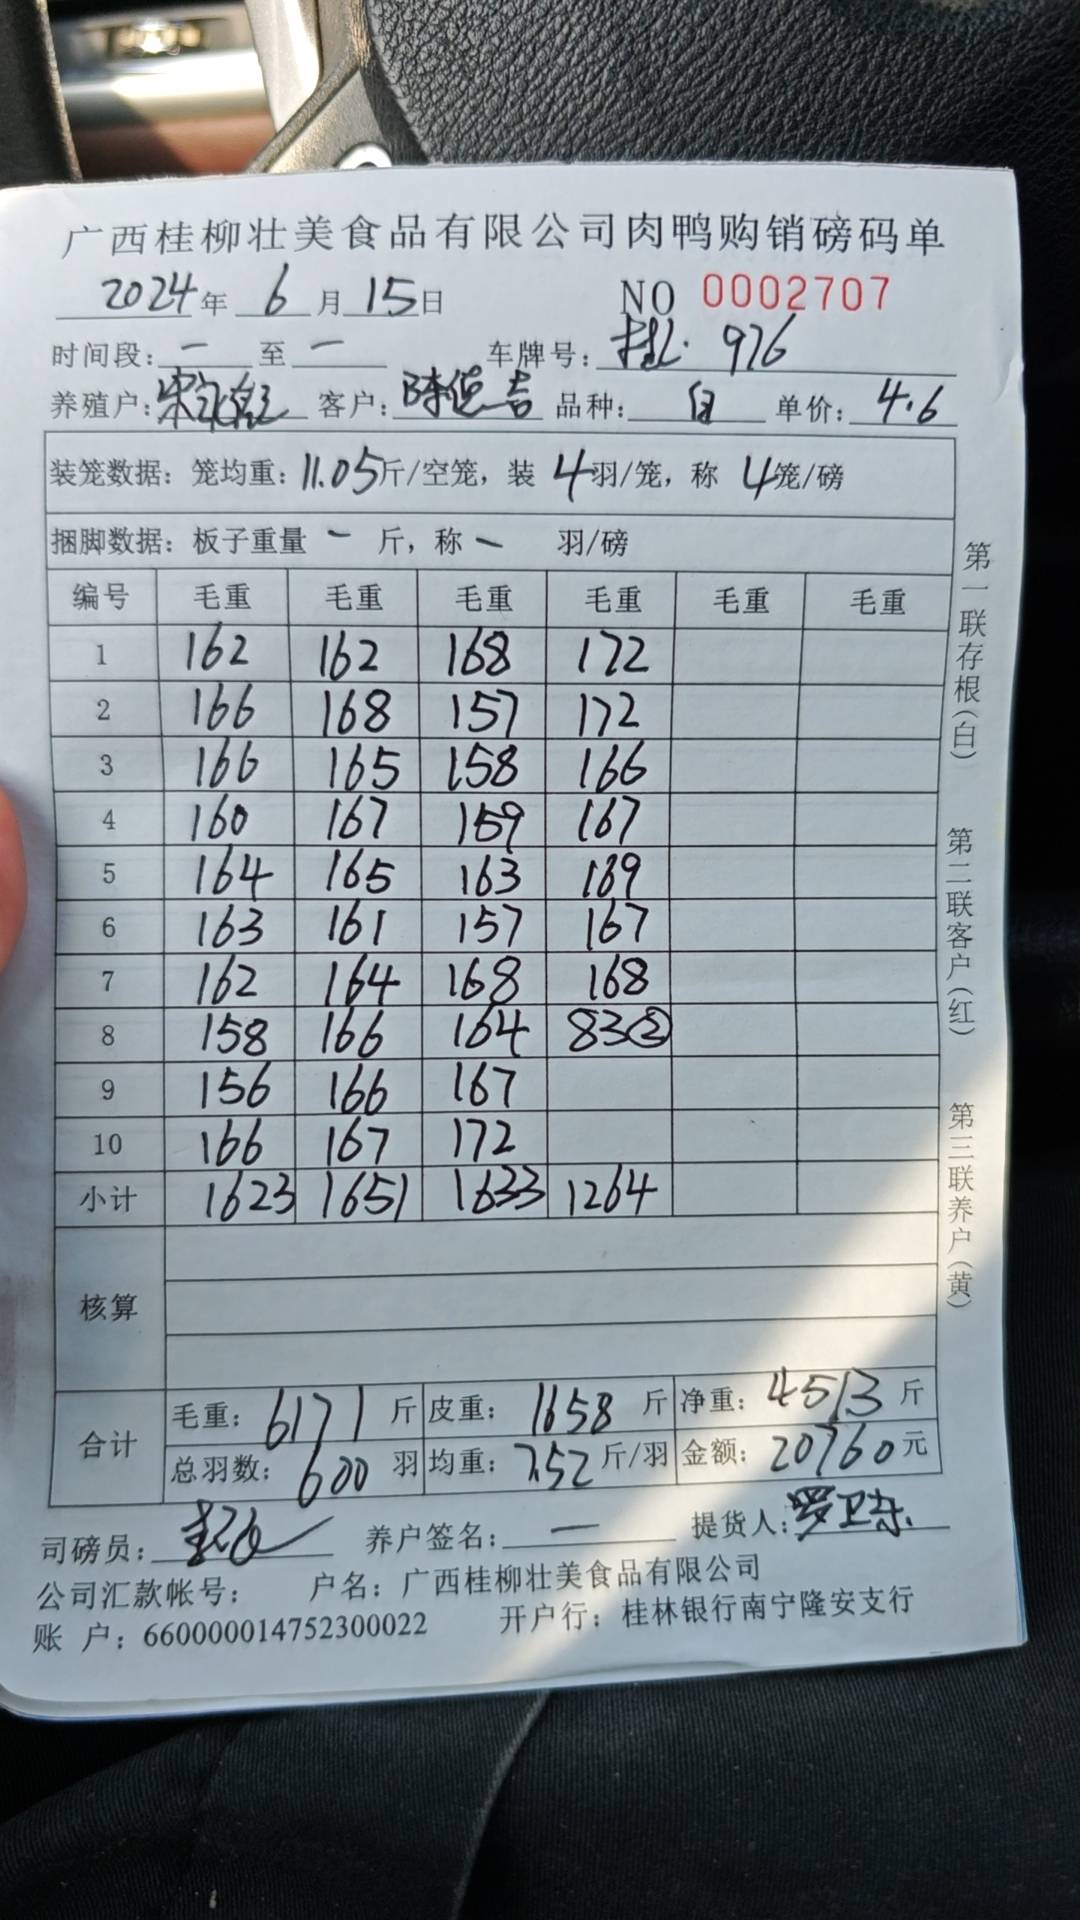 广西桂柳壮美食品有限公司肉鸭购销磅码单
2024年 6月15日 NO 0002707
时间段：一 至 一 车牌号： 976
养殖户：宋 客户：陈 吉 品种：白 单价：4.6
装笼数据：笼均重：11.05斤/空笼，装 4羽/笼，称 4笼/磅
捆脚数据：板子重量 一 斤，称 一 羽/磅
编号 毛重 毛重 毛重 毛重 毛重 毛重
1 162 162 168 172
2 166 168 157 172
3 166 165 158 166
4 160 167 159 167
5 164 165 163 169
6 163 161 157 167
7 162 164 168 168
8 158 166 164 83②
9 156 166 167
10 166 167 172
小计 1623 1651 1633 1264
核算
合计 毛重：6171斤 皮重：1658斤 净重：4513斤
总羽数：600羽 均重：7.52斤/羽 金额：20760元
司磅员： 养户签名：一 提货人：罗卫东
公司汇款帐号： 户名：广西桂柳壮美食品有限公司
账 户：660000014752300022 开户行：桂林银行南宁隆安支行
第一联存根（白） 第二联客户（红） 第三联养户（黄）